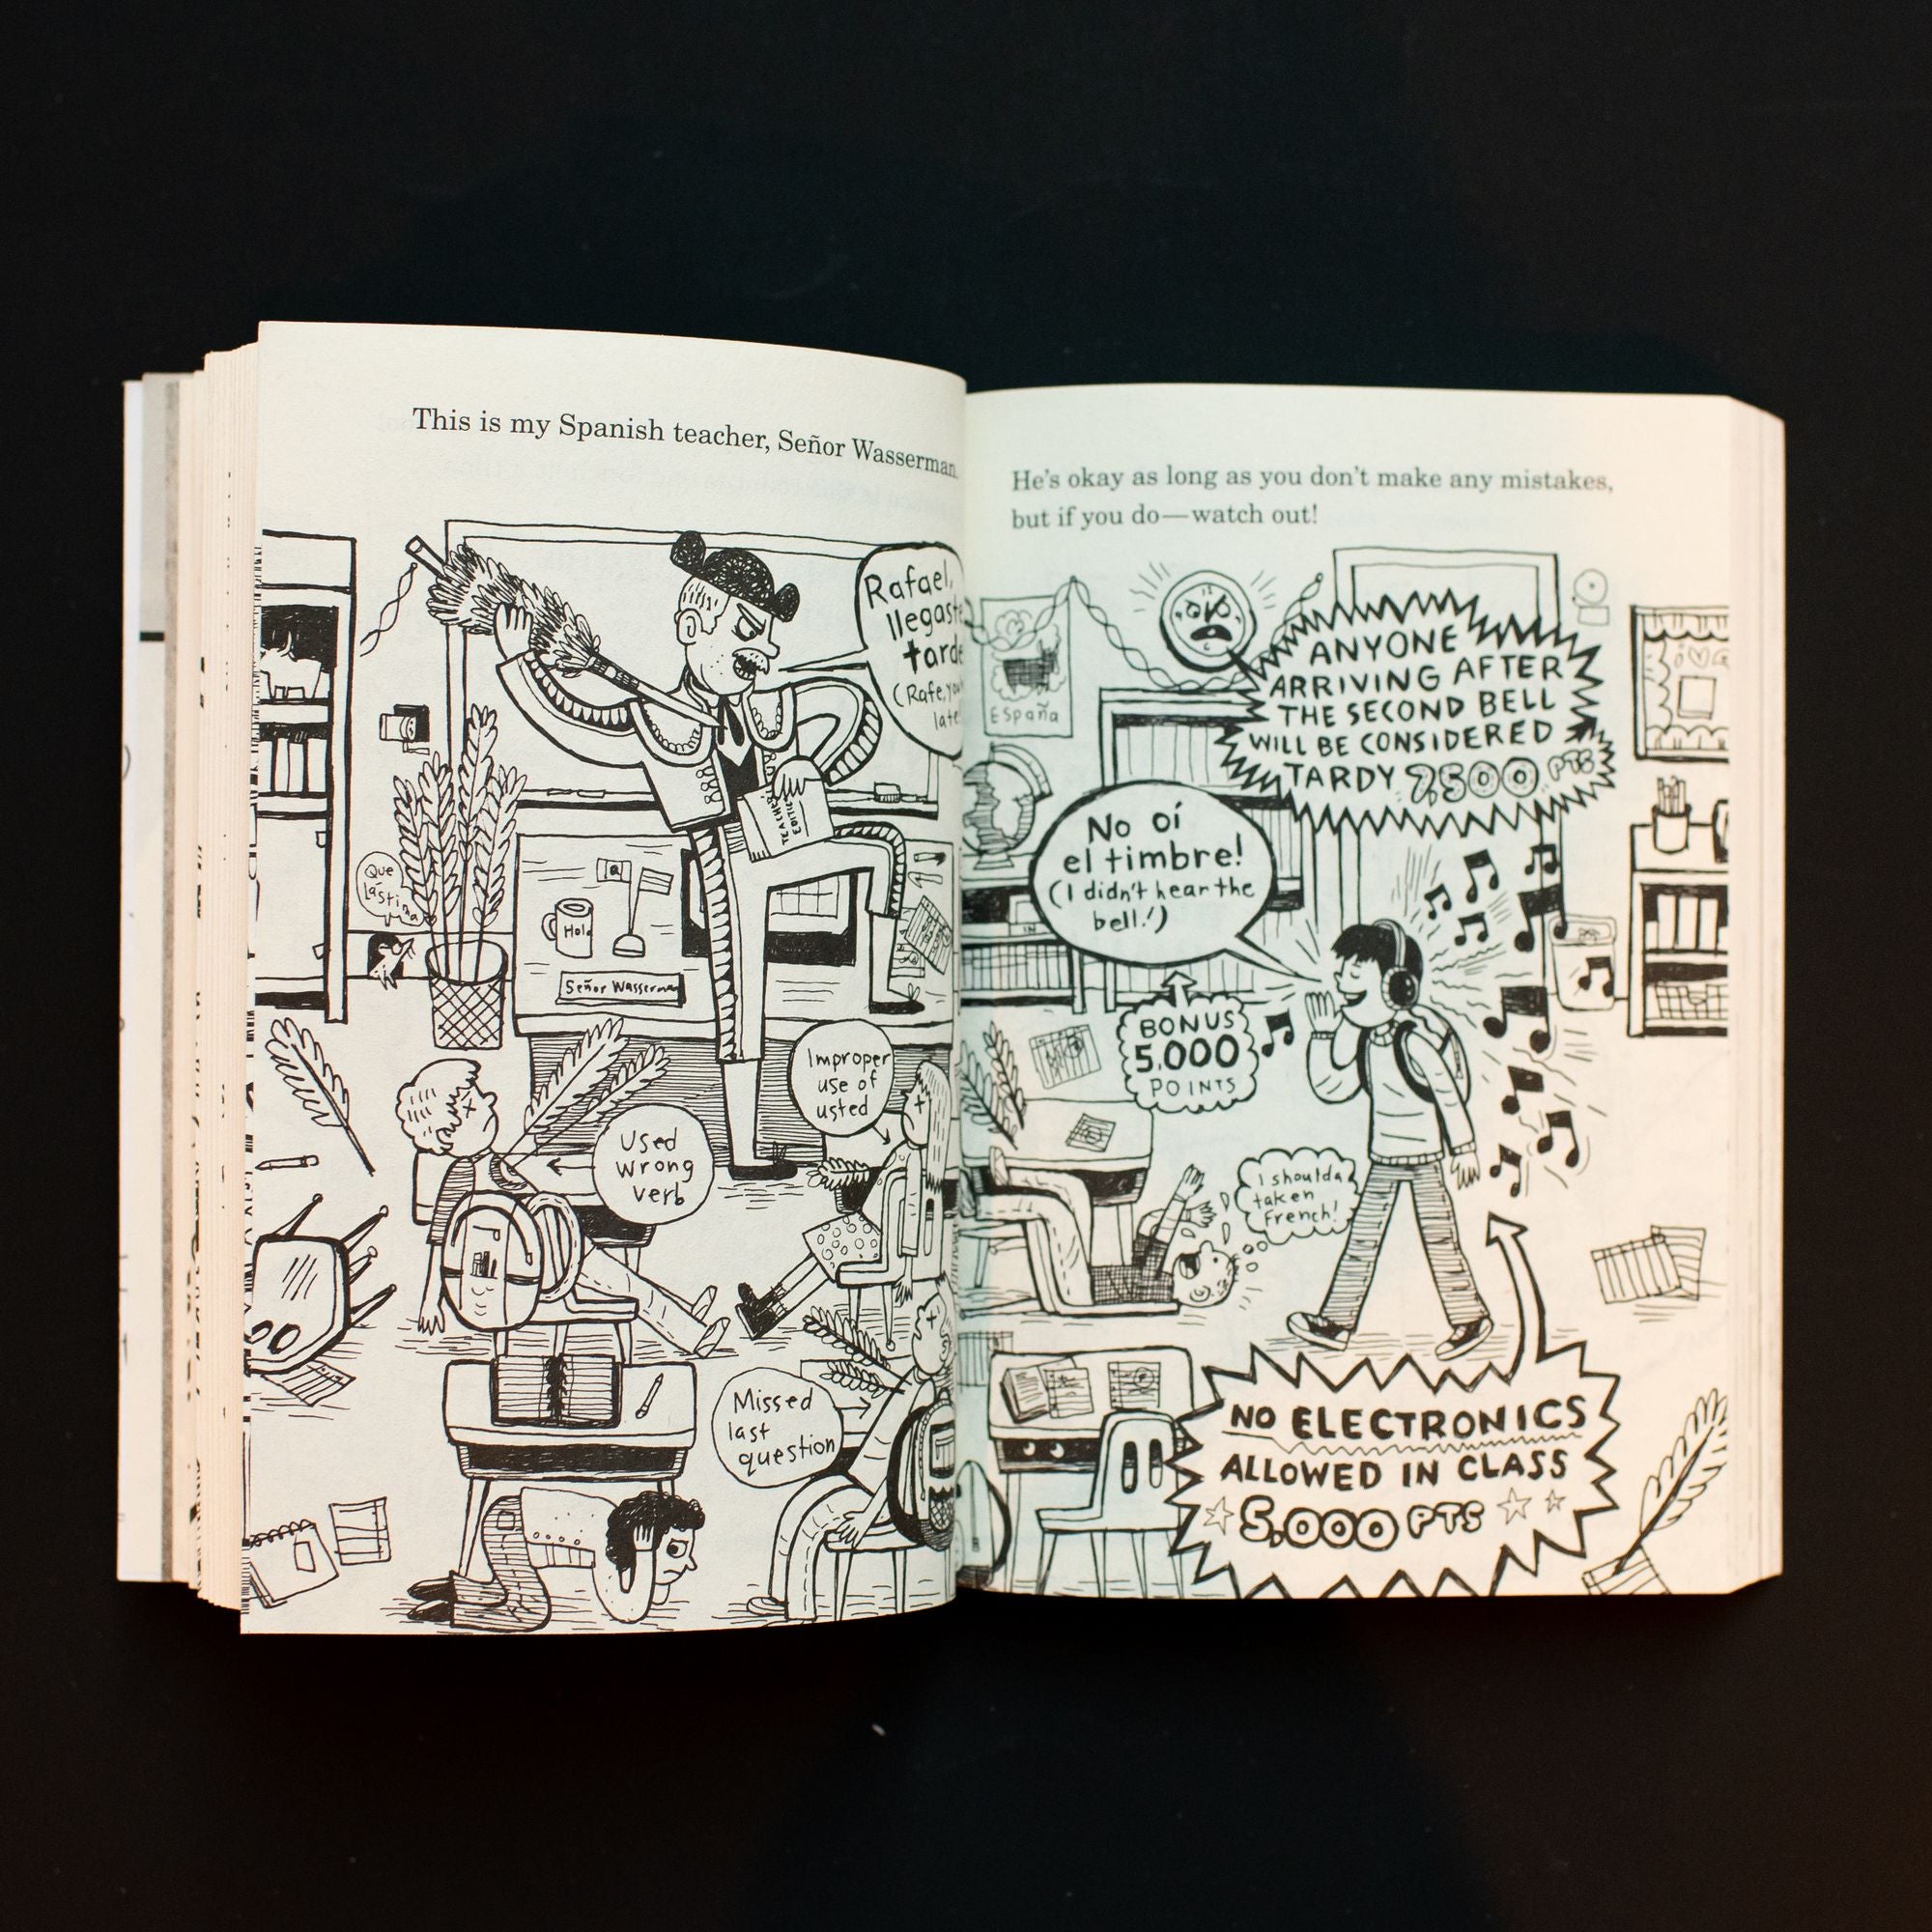 This is my Spanish teacher, Señor Wasserman.
Rafael,
llegaste
tarde
(Rafe,
late
Que
lastima
TEACHER'S
EDITION
Hola
Señor Wasserman
Improper
use of
usted
Used
wrong
verb
Missed
last
question
He's okay as long as you don't make any mistakes,
but if you do—watch out!
España
ANYONE
ARRIVING AFTER
THE SECOND BELL
WILL BE CONSIDERED
TARDY 7,500 PTS
No oí
el timbre!
(I didn't hear the
bell!)
IN
BONUS
5,000
POINTS
I shoulda
taken
French!
NO ELECTRONICS
ALLOWED IN CLASS
5,000 PTS